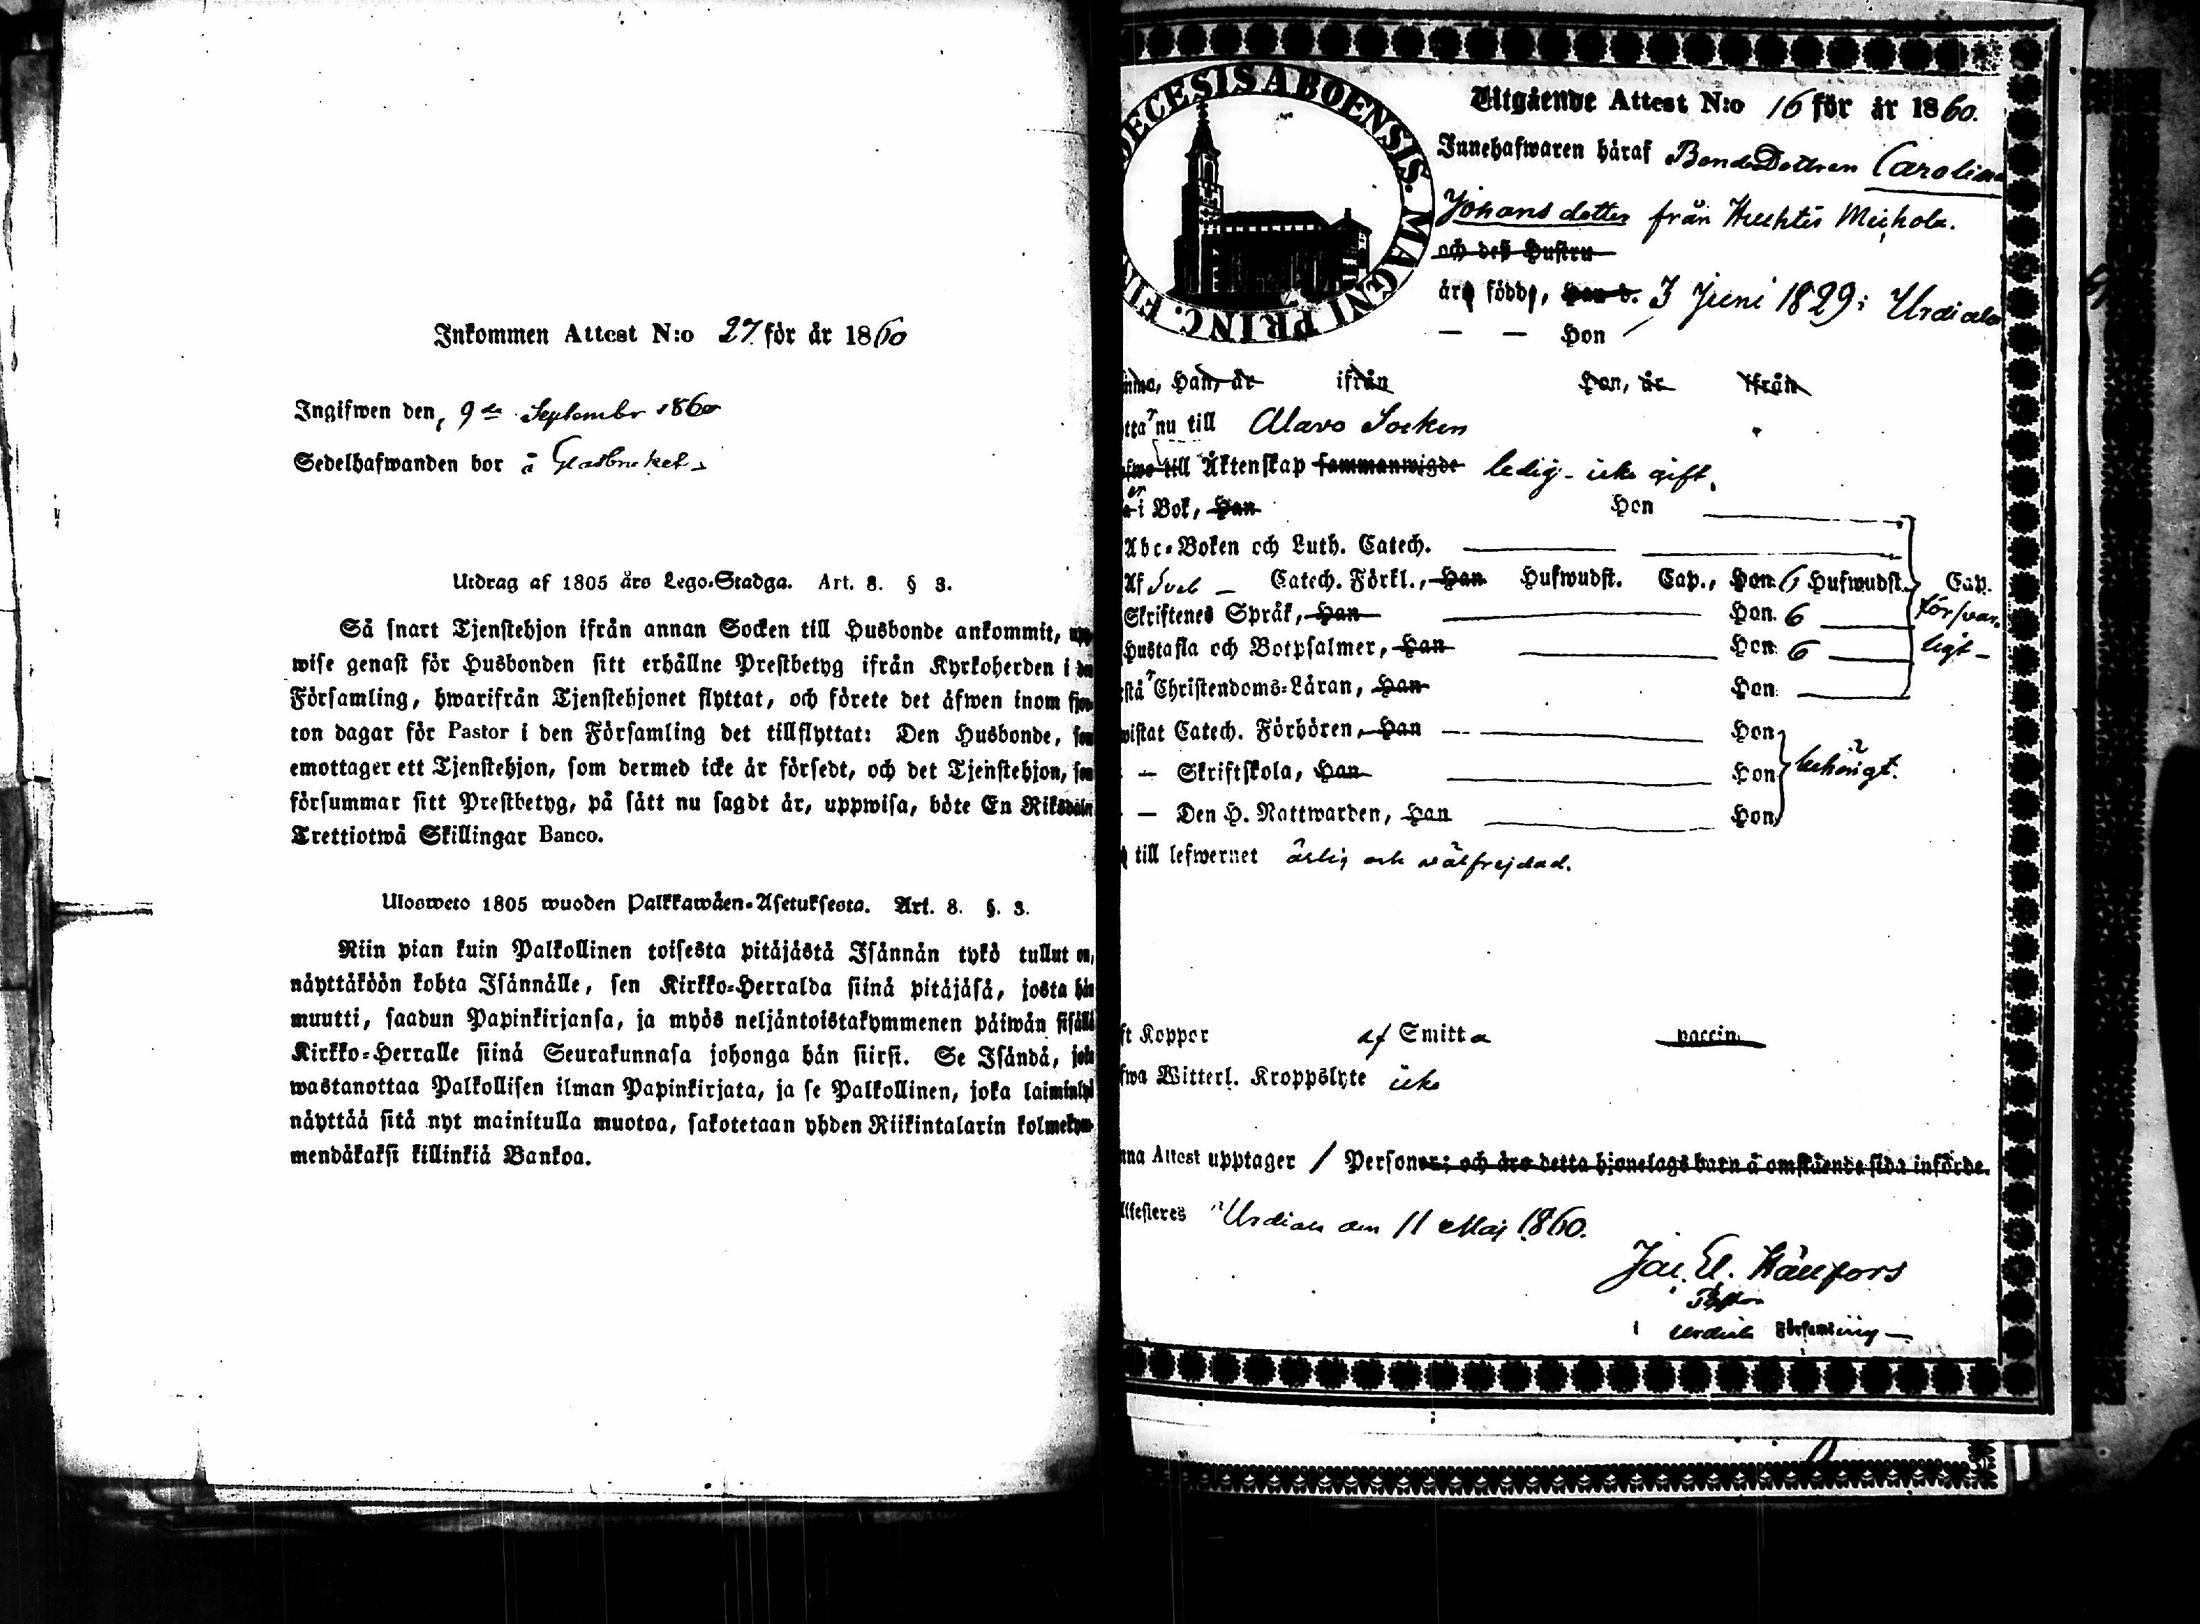 Inkommen Attest N:o 27 för år 1860
Ingifwen den, 9de September 1860
Sedelhafwanden bor å Glasbruket
Utdrag af 1805 års Lego-Stadga. Art. 8. § 3.
Så snart Tjenstehjon ifrån annan Socken till Husbonde ankommit, upp-
wise genast för Husbonden sitt erhållne Prestbetyg ifrån Kyrkoherden i den
Församling, hwarifrån Tjenstehjonet flyttat, och förete det äfwen inom fjor-
ton dagar för Pastor i den Församling det tillflyttat: Den Husbonde, som
emottager ett Tjenstehjon, som dermed icke är försedt, och det Tjenstehjon, som
försummar sitt Prestbetyg, på sätt nu sagdt är, uppwisa, böte En Riksdaler
Trettiotwå Skillingar Banco.
Ulosweto 1805 wuoden Palkkawäen-Asetuksesta. Art. 8. §. 3.
Niin pian kuin Palkollinen toisesta pitäjästä Isännän tykö tullut on,
näyttäköön kohta Isännälle, sen Kirkko-Herralda siinä pitäjäsä, josta hän
muutti, saadun Papinkirjansa, ja myös neljäntoistakymmenen päiwän sisällä
Kirkko-Herralle siinä Seurakunnasa johonga hän siirsi. Se Isändä, joka
wastanottaa Palkollisen ilman Papinkirjata, ja se Palkollinen, joka laiminlyö
näyttää sitä nyt mainitulla muotoa, sakotetaan yhden Riikintalarin kolmekym-
mendäkaksi killinkiä Bankoa.
DECESIS ABOENSIS. MAGNI PRINC. FIN
Utgående Attest N:o 16 för år 1860.
Innehafwaren häraf BondeDottren Carolina
Johansdotter från Huhtis Michola.
och deß Hustru
äro födde, Han d. 3 Juni 1829 i Urdiala
— — Hon
Han, är ifrån Hon, är ifrån
nu till Alavo Socken
till Äktenskap sammanwigde ledig - icke gift.
i Bok, Han Hon
Abc-Boken och Luth. Catech.
Af Sveb — Catech. Förkl., Han Hufwudst. Cap., Hon 6 Hufwudst. Cap.
Skriftenes Språk, Han Hon 6 försvar-
Hustafla och Botpsalmer, Han Hon 6 ligt -
Christendoms-Läran, Han Hon
Catech. Förhören, Han — Hon
— Skriftskola, Han Hon behörigt.
— Den H. Nattwarden, Han Hon
till lefwernet ärlig och välfrejdad.
Koppor af Smitta vaccin.
Witterl. Kroppslyte icke
Attest upptager 1 Personer; och äro detta hjonelags barn å omstående sida införde.
Urdiala den 11 Maj 1860.
Pastor
i Urdiala Församling —